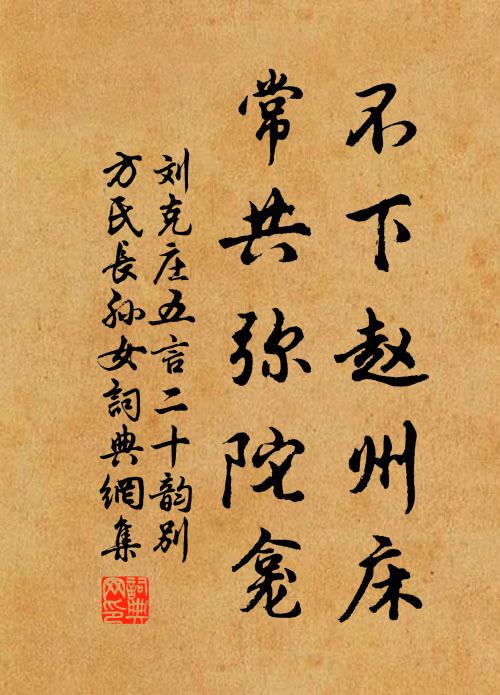 不下赵州床
常共弥陀龛
刘克庄五言二十韵别
方氏長孙女詞典網集